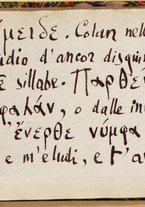 μειδε. Colan nel
dio d'ancor disgiun
ε sillabe. Παρθέν
φαλάν, o dalle in
ἔνερθε νύμφα
e m'eludi, e t'av